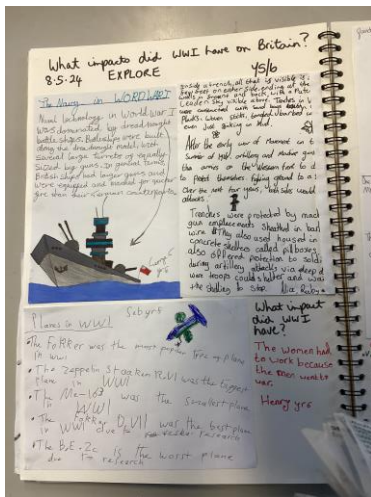 What impacts did WWI have on Britain?
8.5.24 EXPLORE Y5/6
The Navy in WORLD WAR I
Naval technology in World War I
was dominated by dreadnought
battleships. Battleships were built
along the dreadnought model, with
several large turrets of equally
sized big guns. In general terms,
British ships had larger guns and
were equipped and manned for quicker
fire than their German counterparts.
inside a trench, all that is visible is
few feet on either side, ending at the
walls in front and back, with a
Leaden sky visible above. Trenches in
were constructed with sand bags
Planks, woven sticks, tangled barbed
even just stinking mud.
After the early war of movement in the
summer of 1914, artillery and machine guns
the armies on the Western Front to d
to protect themselves fighting ground to a
Over the next four years, both sides would
attacks.
Trenches were protected by mach
gun emplacements sheathed in barb
wire. They also used housed in
concrete shelters called pillboxes
also offered protection to soldi
during artillery attacks via deep d
was troops could shelter and wai
the shelling to stop. Ruby
Planes in WWI Seb yr 5
•The Fokker was the most popular plane
in WWI
•The Zeppelin Staaken R.VI was the biggest
plane in WWI
•The Me-163 was the smallest plane
in WWI
•The Fokker D.VII was the best plane
in WWI due to research
•The B.E.2c is the worst plane
due to research
What impact
did WWI
have?
The women had
to work because
the men went to
war.
Henry yr 5